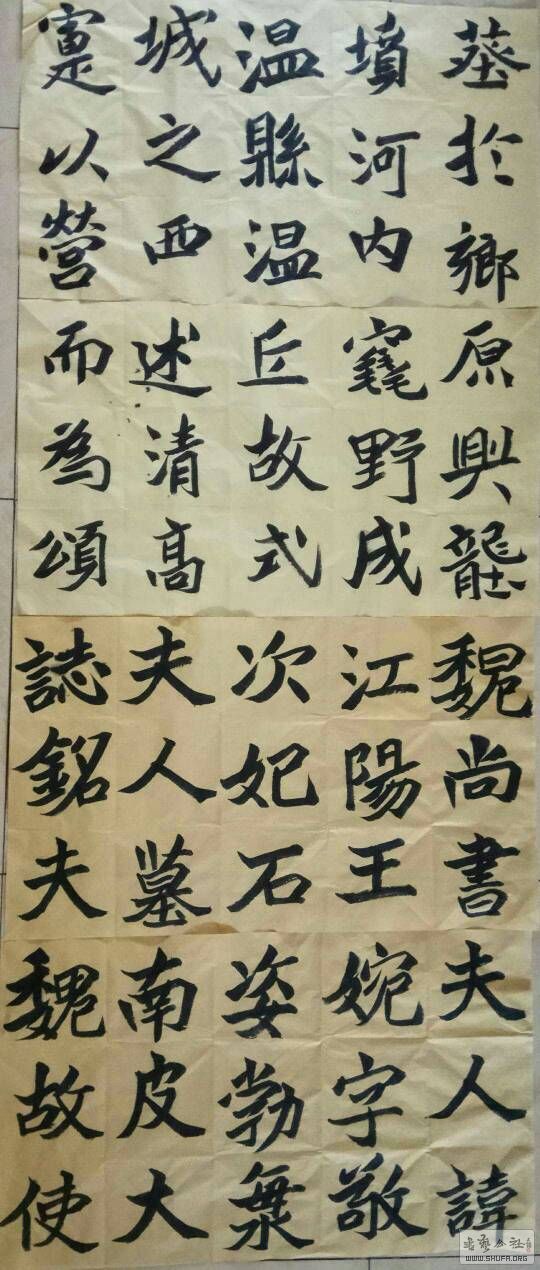 葬於鄉
墳河内
温縣温
城之西
寔以營
原興壟
竁野成
丘故式
述清高
而為頌
魏尚書
江陽王
次妃石
夫人墓
誌銘夫
夫人諱
婉字敬
姿勃海
南皮大
魏故使
WWW.SHUFA.ORG